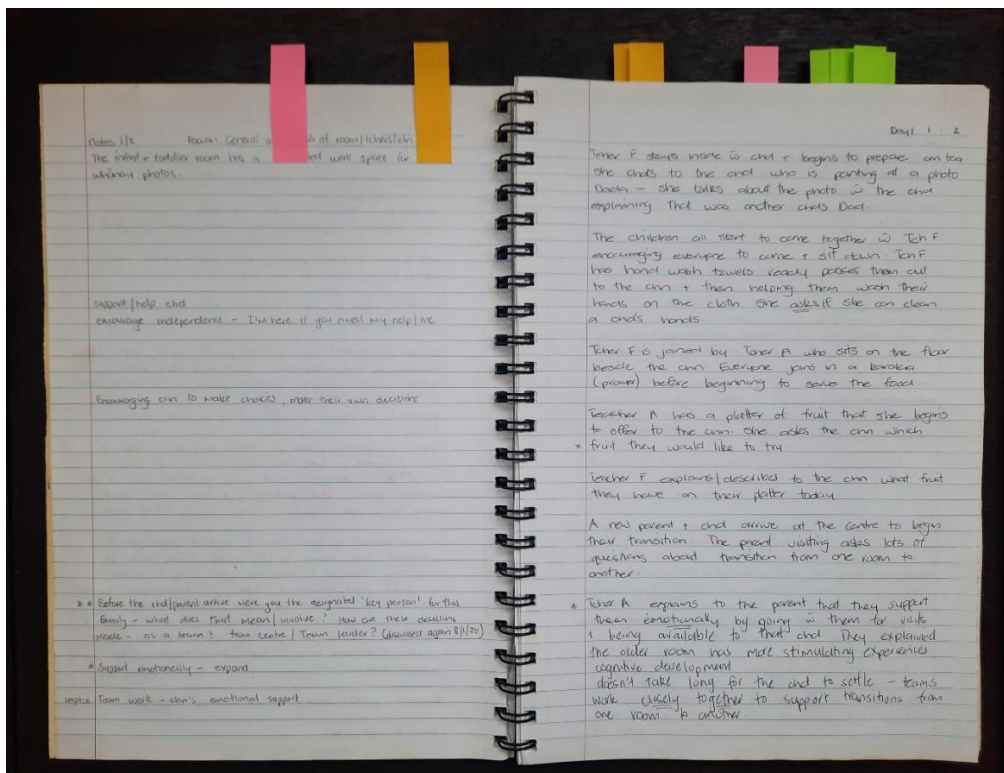 notes 1/2 Focus: General of room/tchers/chn
The infant + toddler room has a wall space for
whānau photos.
support/help chd
encourage independence - I'm here if you need my help/me
Encouraging chn to make choices, make their own decisions
* * Before the chd/parent arrive were you the designated 'key person' for this
family - what does that mean/involve? How are these decisions
made - as a team? from centre/Team leader? (discussed again 8/1/20)
* Support emotionally - expand
Team work - chn's emotional support
Day 1 1 2
Tcher F stays none w̄ chd + begins to prepare am tea
she chats to the chd who is pointing at a photo
Dada - she talks about the photo w̄ the chd
explaining That was another chds Dad.
The children all start to come together w̄ Tch F
encouraging everyone to come + sit down. Tch F
has hand wash towels ready passes them out
to the chn + then helping them wash their
hands on the cloth. She asks if she can clean
a chd's hands.
Tcher F is joined by Tcher A who sits on the floor
beside the chn. Everyone joins in a karakia
(prayer) before beginning to serve the food.
Teacher A has a platter of fruit that she begins
to offer to the chn. She asks the chn which
* fruit they would like to try
Teacher F explains/described to the chn what fruit
they have on their platter today
A new parent + chd arrive at the centre to begin
their transition. The parent visiting asks lots of
questions about transition from one room to
another.
* Tcher A explains to the parent that they support
them emotionally by going w̄ them for visits
+ being available to that chd They explained
the older room has more stimulating experiences
cognitive development
doesn't take long for the chd to settle - teams
work closely together to support transitions from
one room to another.